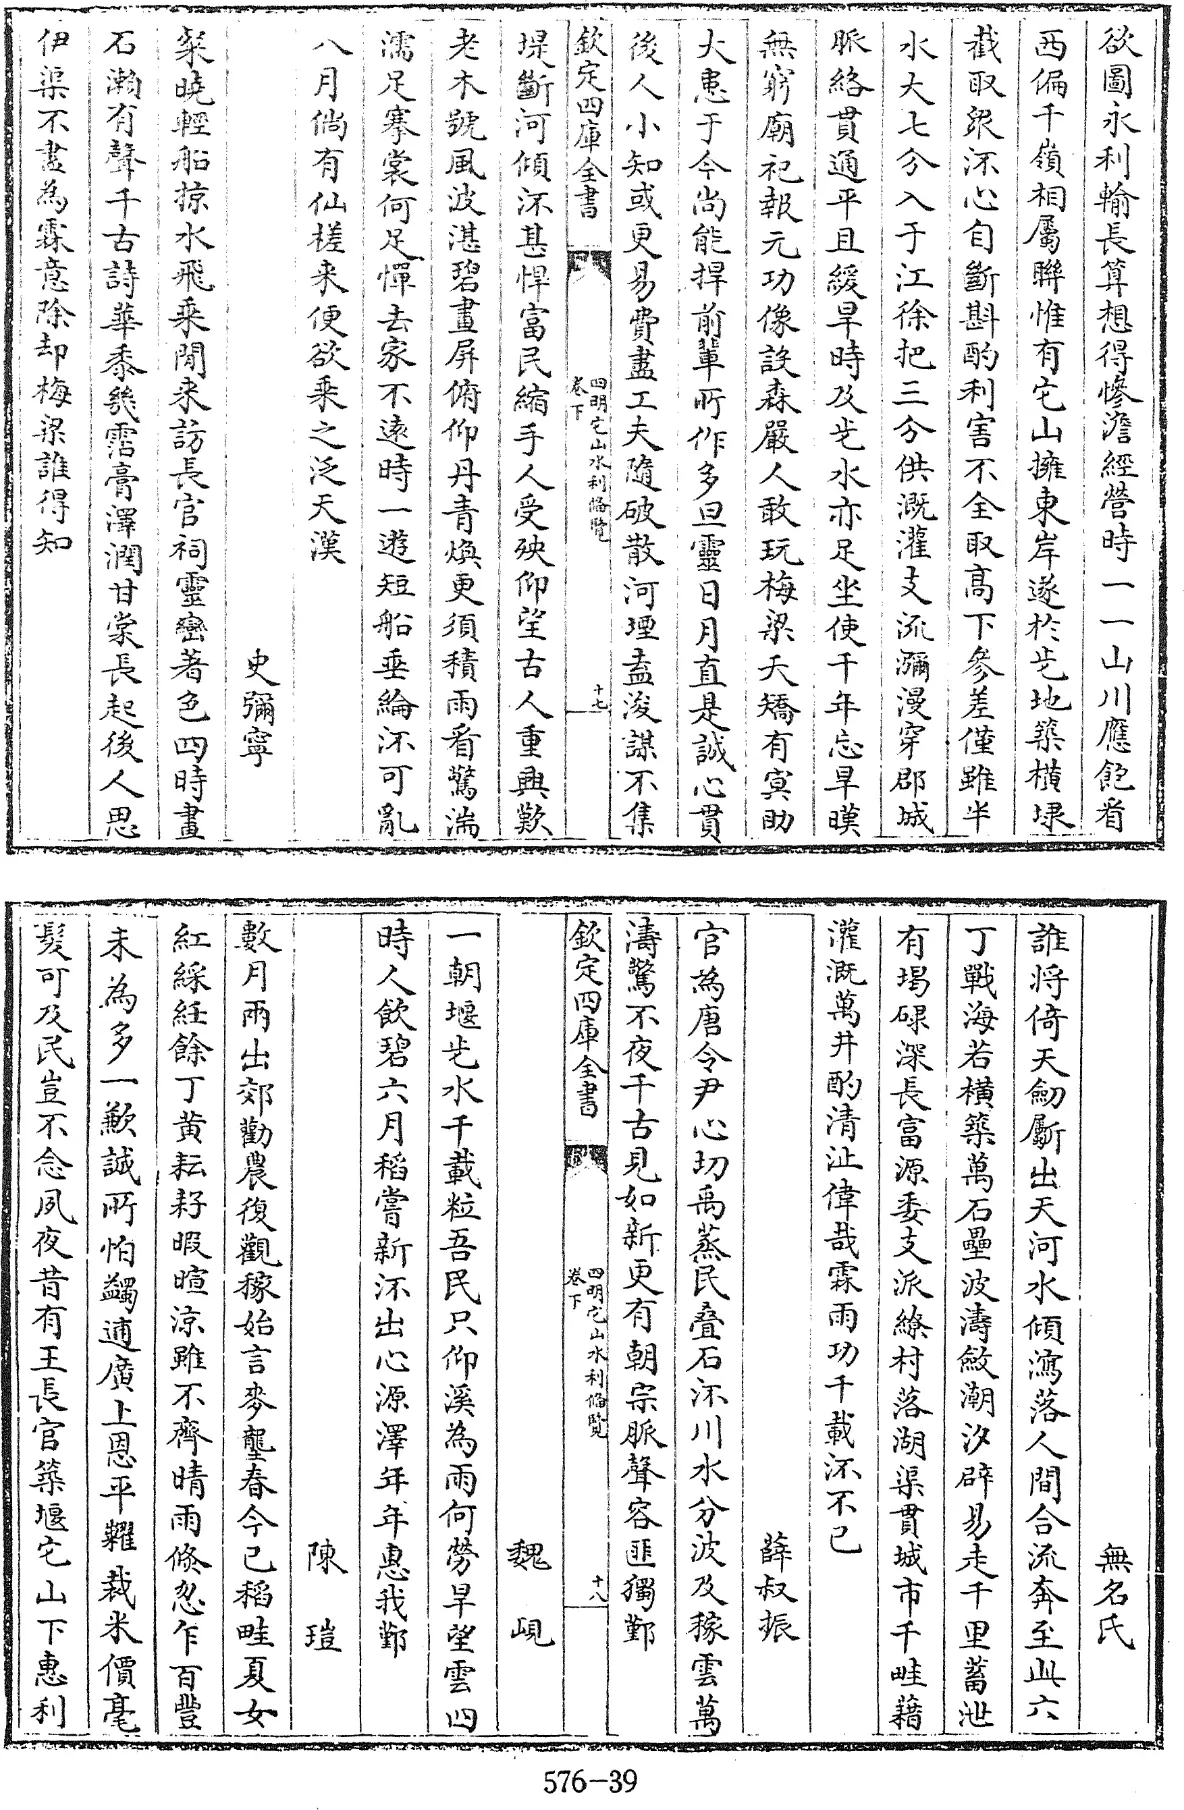 欲圖永利輸長算想得慘澹經營時一一山川應飽看
西偏千嶺相屬聯惟有它山擁東岸遂於此地築橫埭
截取眾流心自斷斟酌利害不全取高下參差僅雖半
水大七分入于江徐把三分供溉灌支流瀰漫穿郡城
脈絡貫通平且緩旱時及此水亦足坐使千年忘旱暵
無窮廟祀報元功像設森嚴人敢玩梅梁夭矯有冥助
大患于今尚能捍前輩所作多旦靈日月直是誠心貫
後人小知或更易費盡工夫隨破散河堙盍浚謀不集
欽定四庫全書
四明它山水利備覽
卷下
十七
堤斷河傾流甚悍富民縮手人受殃仰望古人重興歎
老木號風波湛碧畫屏俯仰丹青煥更須積雨看驚湍
濡足搴裳何足憚去家不遠時一遊短船垂綸流可亂
八月倘有仙槎來便欲乘之泛天漢
史彌寧
槳曉輕船掠水飛乘閒來訪長官祠靈巒著色四時畫
石瀨有聲千古詩華黍幾霑膏澤潤甘棠長起後人思
伊渠不盡為霖意除却梅梁誰得知
無名氏
誰將倚天劒斸出天河水傾瀉落人間合流奔至此六
丁戰海若橫築萬石壘波濤斂潮汐辟易走千里蓄泄
有堨碌深長富源委支派繚村落湖渠貫城市千畦藉
灌溉萬井酌清泚偉哉霖雨功千載流不已
薛叔振
官為唐令尹心切禹蒸民叠石流川水分波及稼雲萬
濤驚不夜千古見如新更有朝宗脈聲容匪獨鄞
欽定四庫全書
四明它山水利備覽
卷下
十八
魏峴
一朝堰此水千載粒吾民只仰溪為雨何勞旱望雲四
時人飲碧六月稻嘗新流出心源澤年年惠我鄞
陳瑄
數月兩出郊勸農復觀稼始言麥壟春今已稻畦夏女
紅綵絍餘丁黄耘耔暇暄涼雖不齊晴雨倐忽乍百豐
未為多一歉誠所怕蠲逋廣上恩平糶裁米價毫
髮可及民豈不念夙夜昔有王長官築堰它山下惠利
576-39